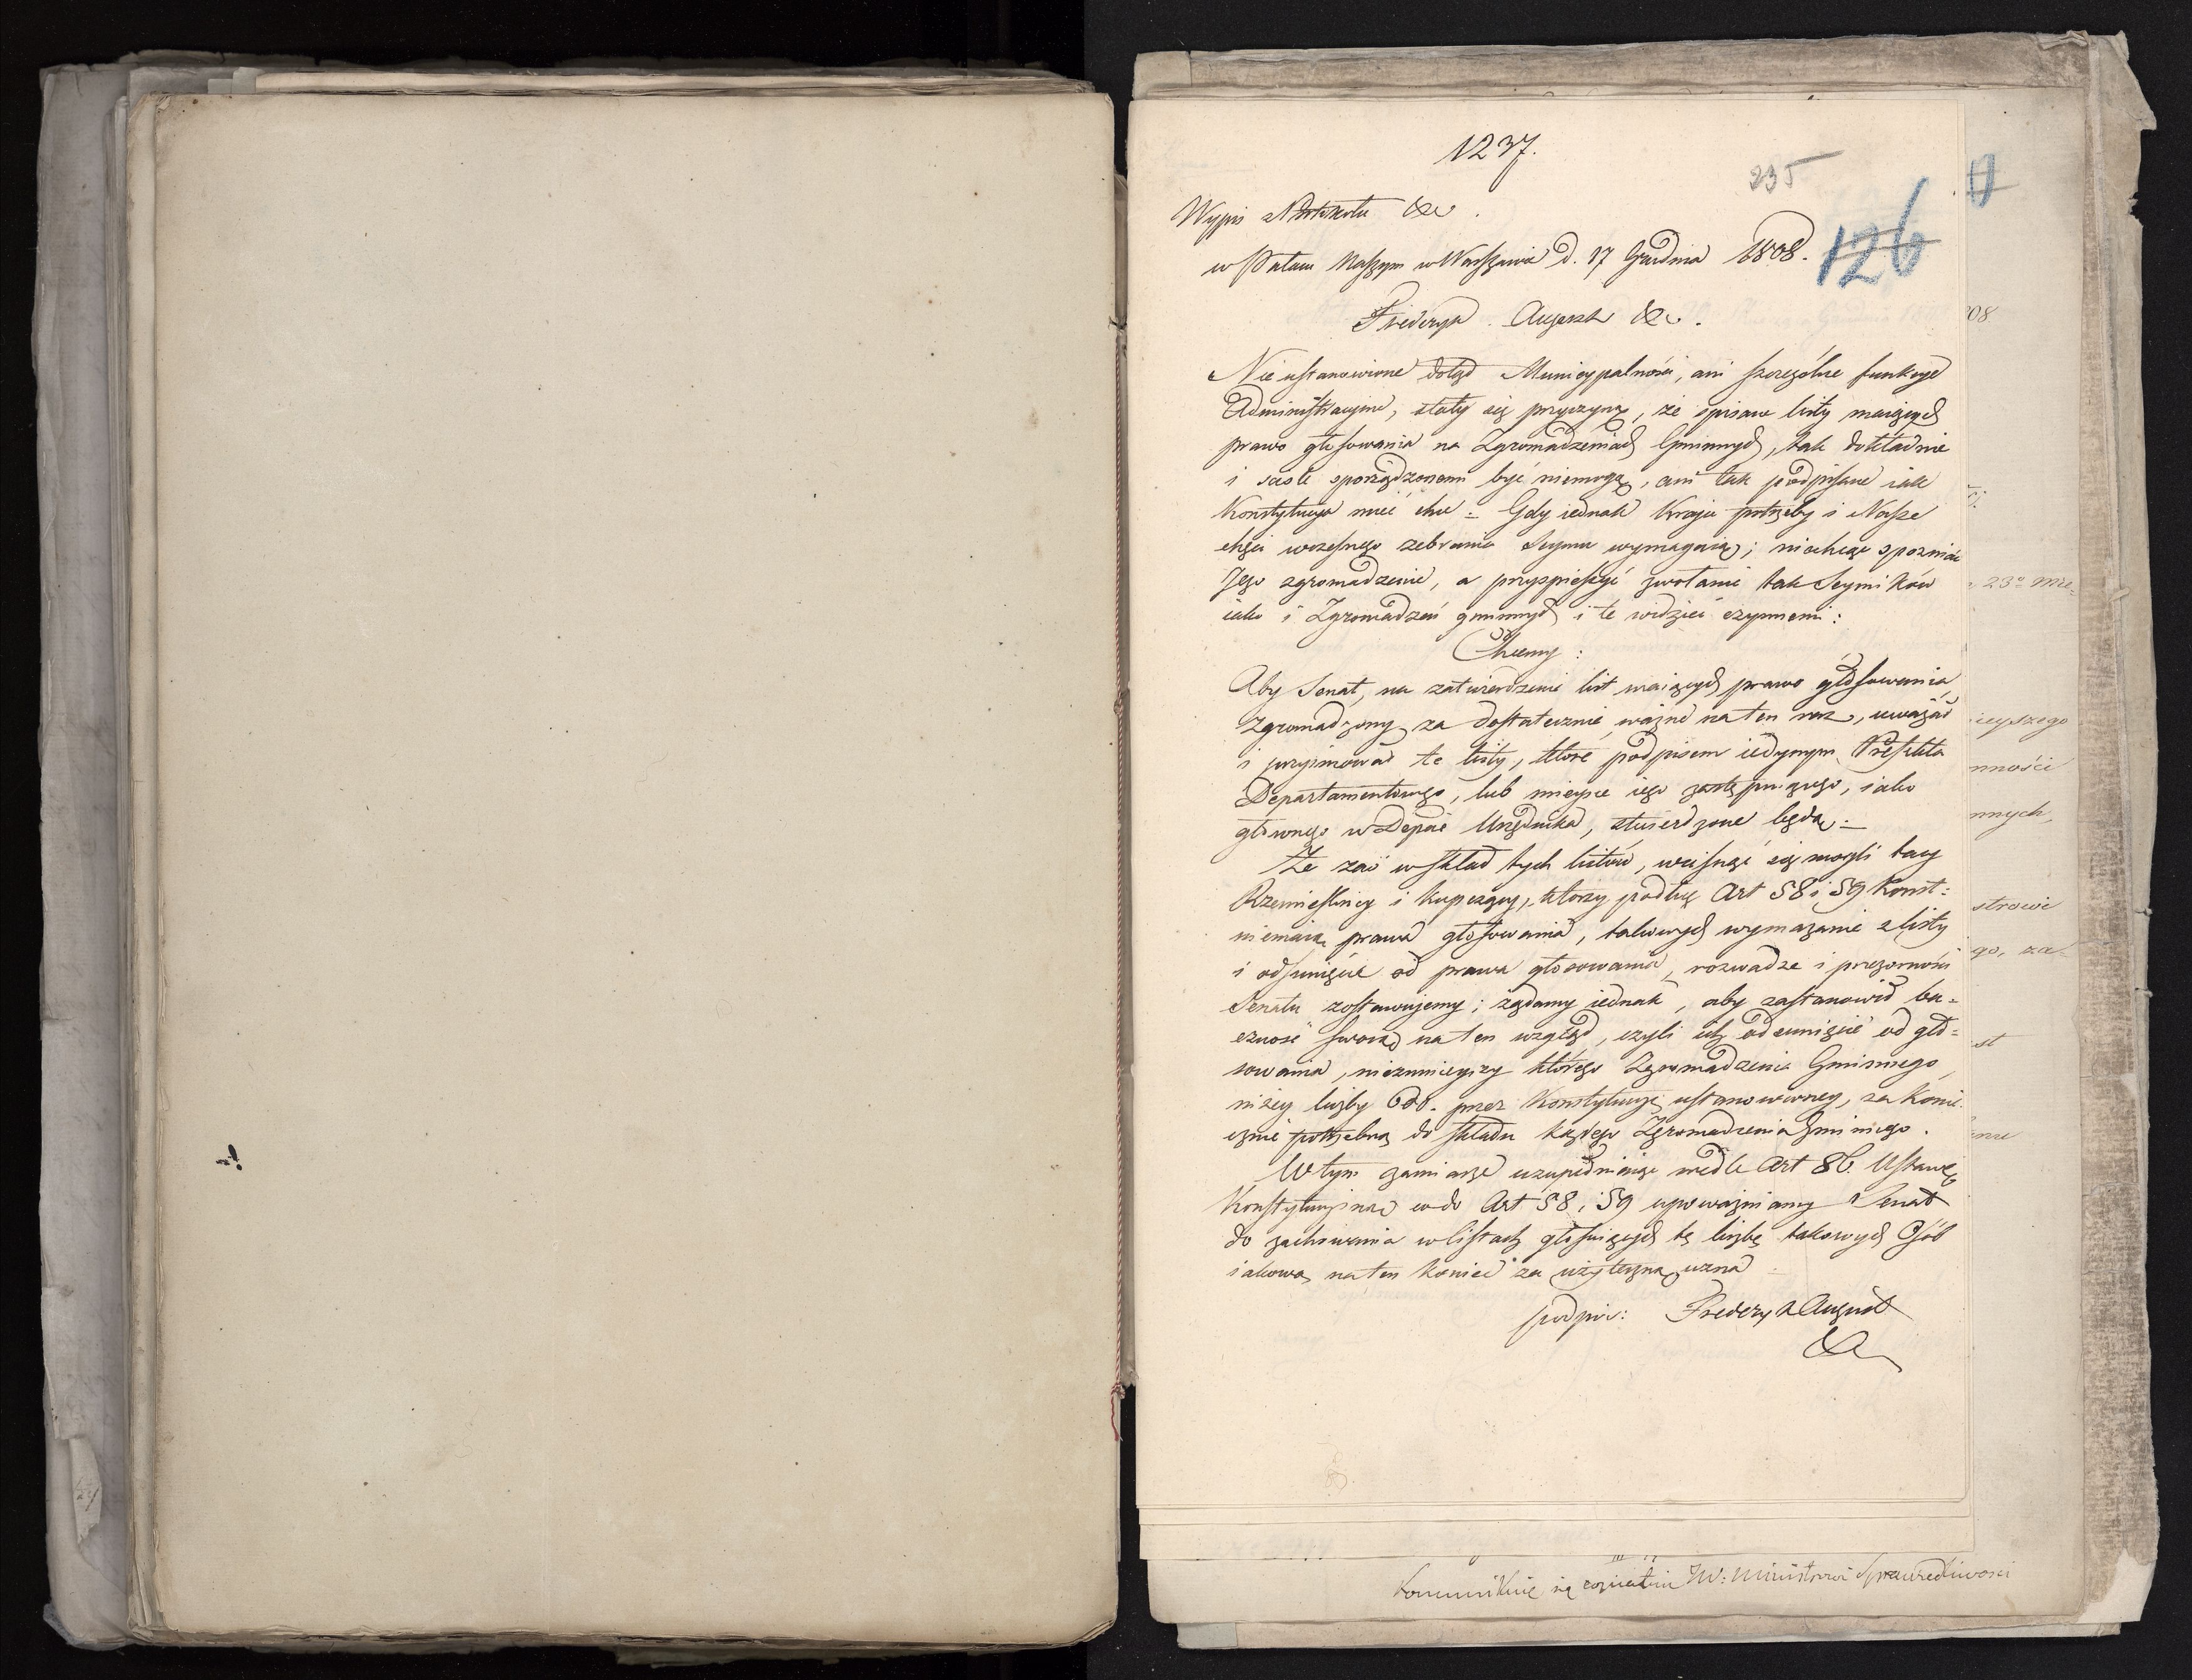 1237.
235
126
Wypis z Protokołu &c.
w Pałacu Naszym w Warszawie d. 17 Grudnia 1808.
Frideryk August &c.
Nie ustanowione dotąd Municypalności, ani szczególne funkcye
Administracyine, stały się przyczyną, że spisane listy maiących
prawo głosowania na Zgromadzeniach Gminnych, tak dokładnie
i ściśle sporządzonemi być niemogą, ani tak podpisane iak
Konstytucya mieć chce = Gdy iednak Kraju potrzeby i Nasze
chęci wczesnego zebrania Seymu wymagaią; niechcąc spozniać
Jego zgromadzenie, a przyspieszyć zwołanie tak Seymików
iako i Zgromadzeń gminnych i te widzieć czynnemi:
Chcemy:
Aby Senat, na zatwierdzenie list maiących prawo głosowania
zgromadzony za dostatecznie ważne na ten raz, uważał
i przyimował te listy, które podpisem iedynym Prefekta
Departamentowego, lub mieysce iego zastępuiącego, iako
głównego w Depcie Urzędnika, stwierdzone będą =
Że zaś w skład tych listów, wcisnąć się mogli tacy
Rzemieślnicy i kupczący, którzy podług Art 58 i 59 Konst:
niemaią prawa głosowania, takowych wymazanie z listy
i odsunięcie od prawa głosowania, rozwadze i przezorności
Senatu zostawujemy; żądamy iednak, aby zastanowił ba=
czność swoią na ten wzgląd, czyli ich odsunięcie od gło=
sowania, niezmnieyszy którego Zgromadzenia Gminnego
niżey liczby 600. przez Konstytucyę ustanowioney, za Konie
cznie potrzebną do składu każdego Zgromadzenia Gminnego.
W tym zamiarze uzupełniaiąc wedle Art 86. Ustawę
Konstytucyiną co do Art 58 i 59 upoważniamy Senat
do zachowania w listach głosuiących tę liczbę takowych Osób
iakową na ten koniec za użyteczną uzna
podpis: Frideryk August
&c
08
23º
icyszego
nności
nnych,
strowie
go, za=
st
Kommunikuię się copiatim JW: Ministrowi Sprawiedliwości